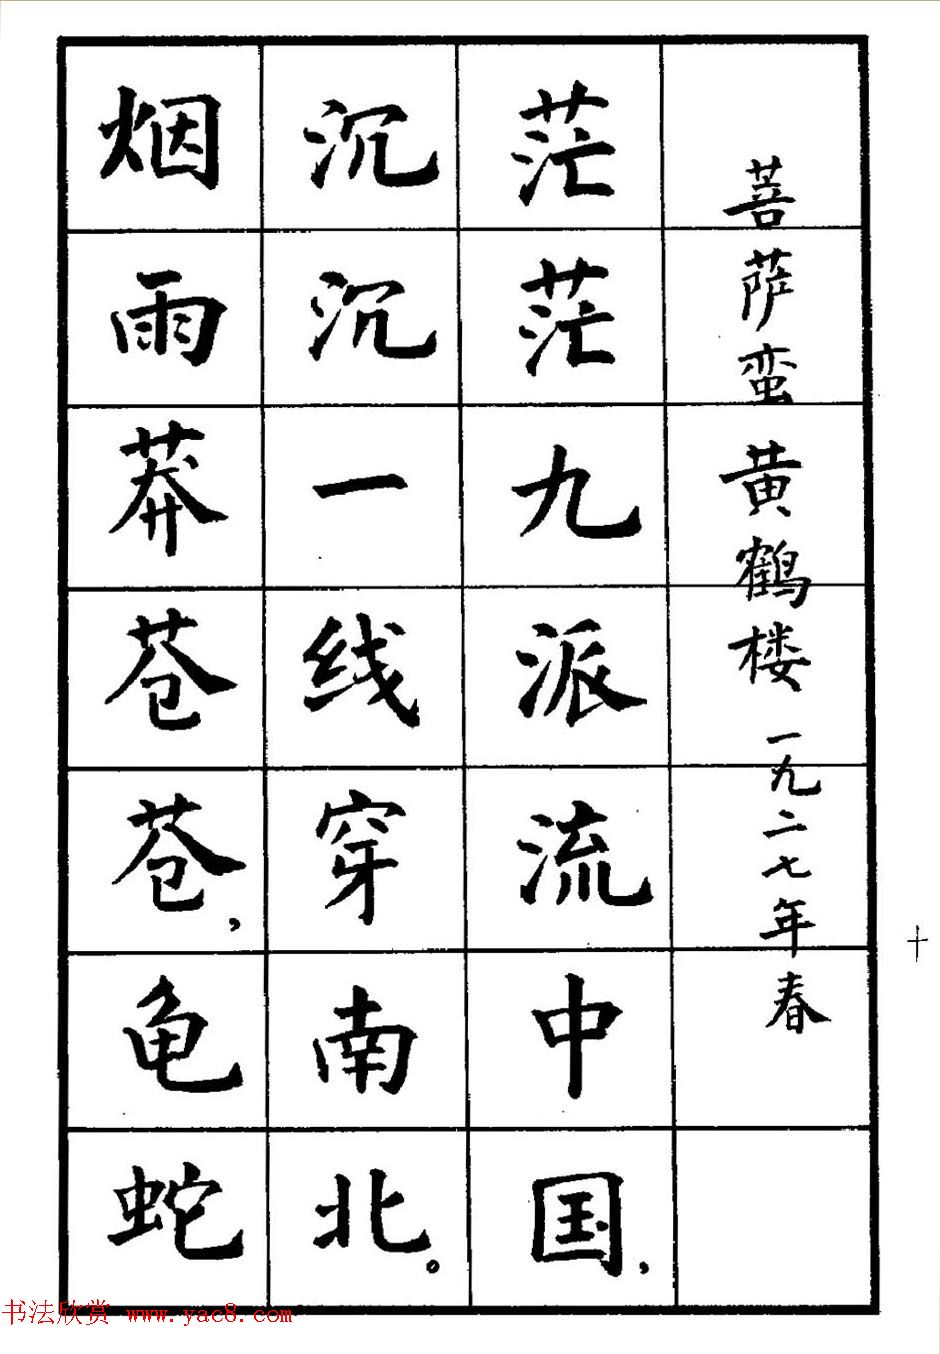 菩萨蛮 黄鹤楼 一九二七年春
茫茫九派流中国，
沉沉一线穿南北。
烟雨莽苍苍，龟蛇
十
书法欣赏 www.yac8.com